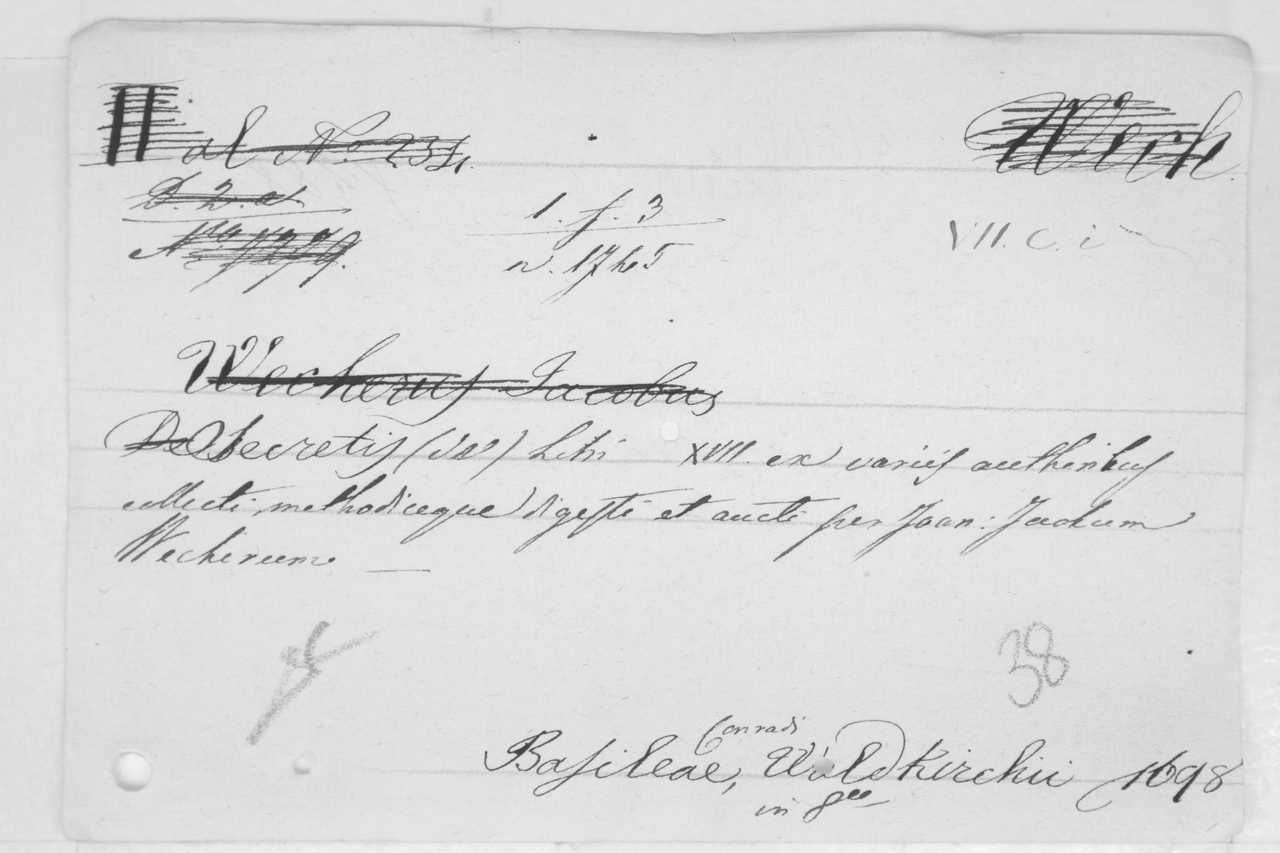 al No 234.
Weck.
D. 2. a
1. f. 3
VII. C. i
No
n. 1765
Weckerus Jacobus
De Secretis (de) Libri XVII. ex variis authoribus
collecti, methodiceque digesti et aucti per Joan: Jacobum
Weckerum
38
Conradi
Basileae, Waldkirchii 1698
in 8vo